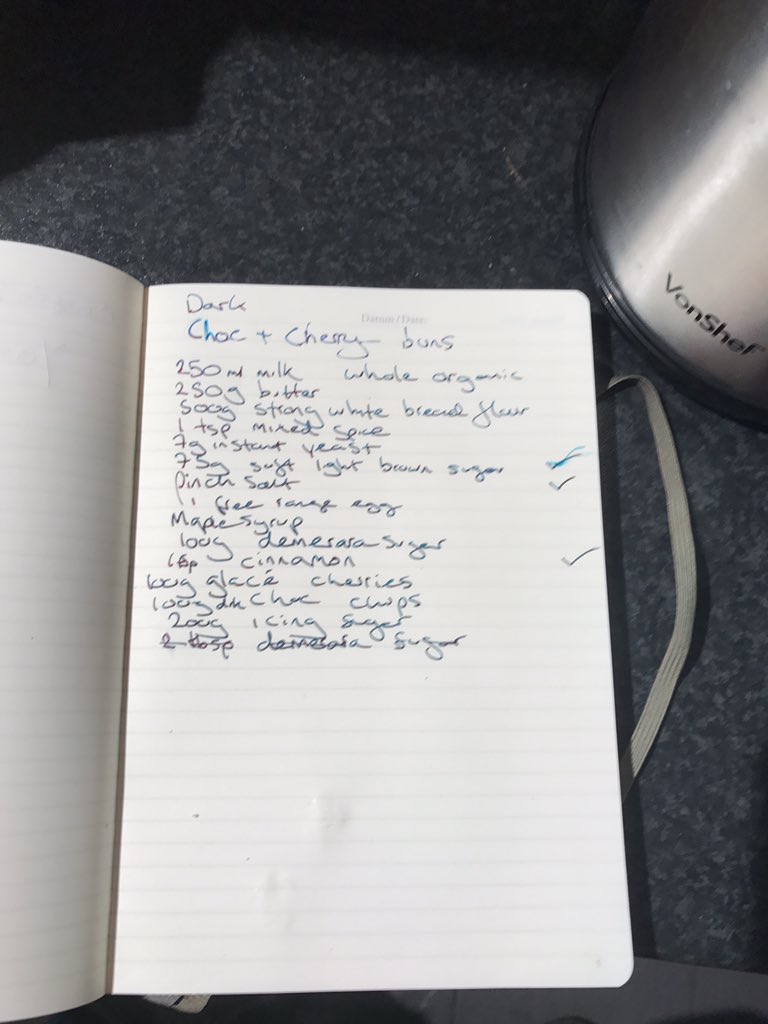 VonShef
Dark
Datum/Date:
Choc + Cherry buns
250 ml milk whole organic
250g butter
500g strong white bread flour
1 tsp mixed spice
7g instant yeast
75g soft light brown sugar ✓
Pinch salt ✓
1 free range egg
Maple Syrup
100g demerara sugar
1 tsp cinnamon ✓
100g glacé cherries
100g drk choc chips
200g icing sugar
2 tbsp demerara sugar